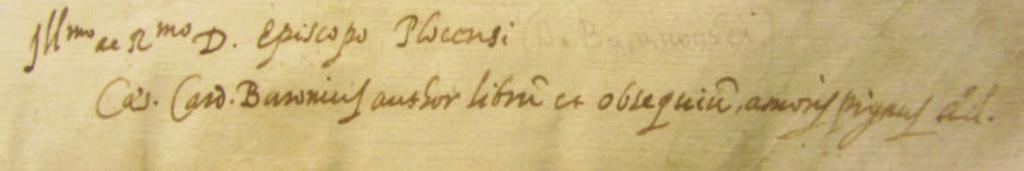 Ill^mo ac R^mo D. Episcopo Plocensi
Cæs. Card. Baronius author librũ et obsequiũ, amoris pignus